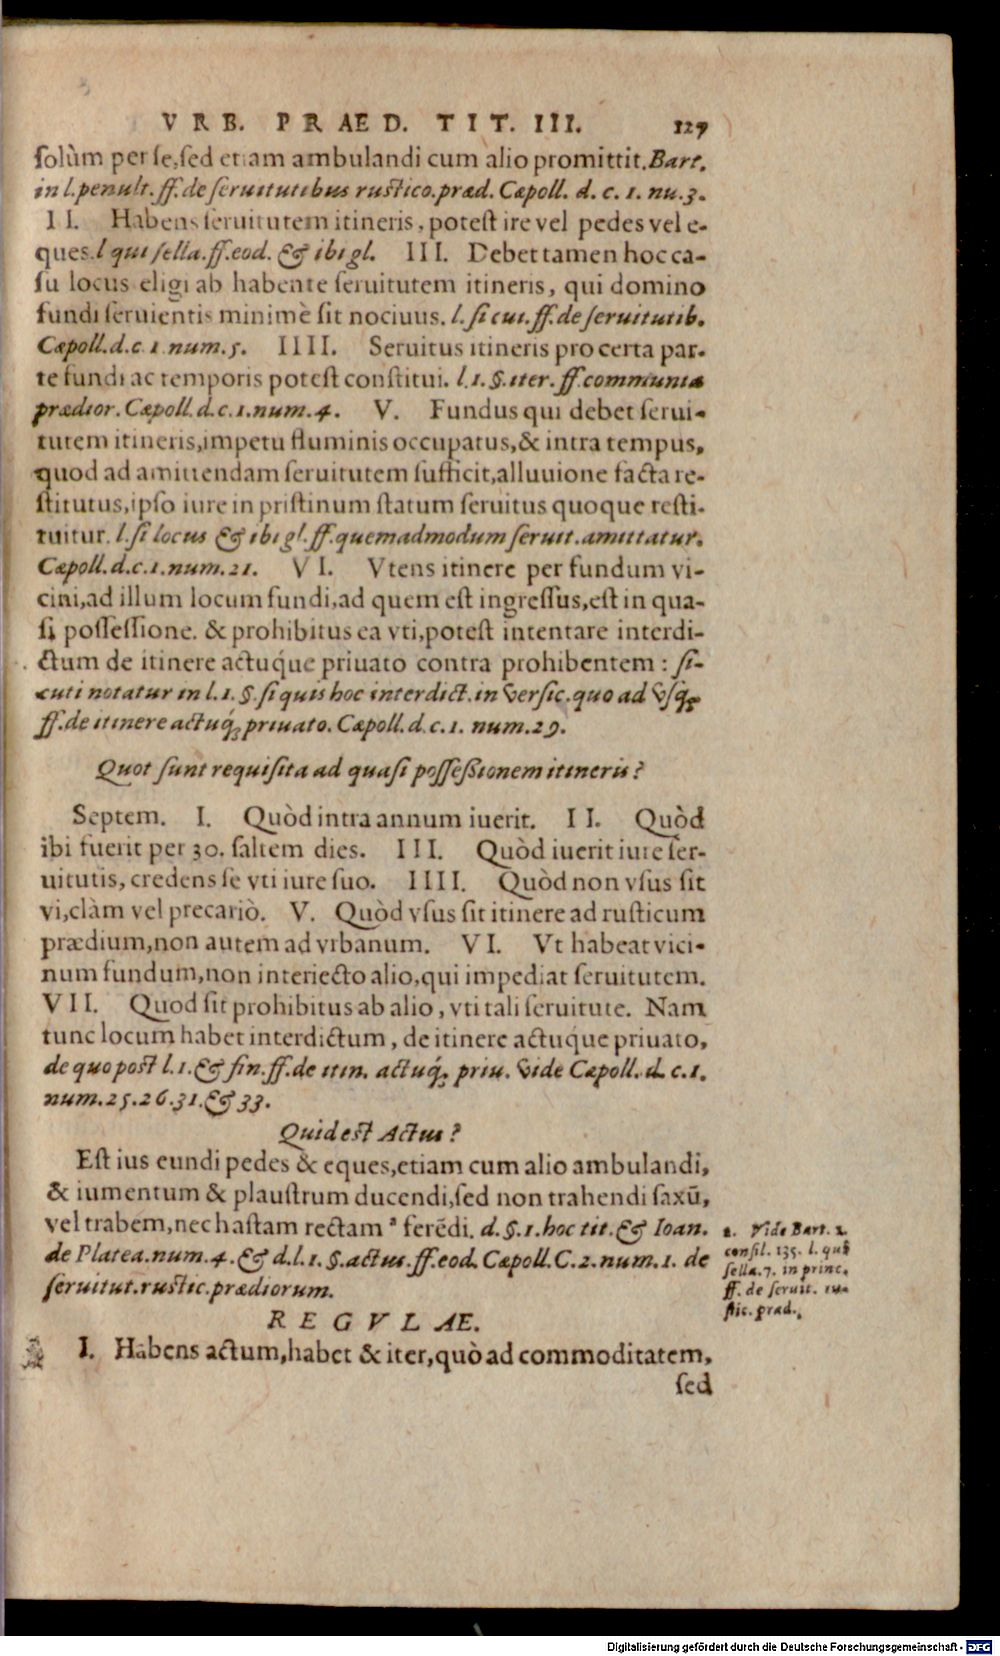 VRB. PRAED. TIT. III. 127
solùm per se, sed etiam ambulandi cum alio promittit. Bart.
in l. penult. ff. de seruitutibus rustico. præd. Cæpoll. d. c. 1. nu. 3.
II. Habens seruitutem itineris, potest ire vel pedes vel e-
ques. l qui sella. ff. eod. & ibi gl. III. Debet tamen hoc ca-
su locus eligi ab habente seruitutem itineris, qui domino
fundi seruientis minimè sit nociuus. l. si cui. ff. de seruitutib.
Cæpoll. d. c. 1 num. 5. IIII. Seruitus itineris pro certa par-
te fundi ac temporis potest constitui. l. 1. §. iter. ff. communia
prædior. Cæpoll. d. c. 1. num. 4. V. Fundus qui debet serui-
tutem itineris, impetu fluminis occupatus, & intra tempus,
quod ad amittendam seruitutem sufficit, alluuione facta re-
stitutus, ipso iure in pristinum statum seruitus quoque resti-
tuitur. l. si locus & ibi gl. ff. quemadmodum seruit. amittatur.
Cæpoll. d. c. 1. num. 21. VI. Vtens itinere per fundum vi-
cini, ad illum locum fundi, ad quem est ingressus, est in qua-
si possessione. & prohibitus ea vti, potest intentare interdi-
ctum de itinere actuq́ue priuato contra prohibentem: si-
cuti notatur in l. 1. §. si quis hoc interdict. in versic. quo ad vsq́;
ff. de itinere actuq́; priuato. Cæpoll. d. c. 1. num. 29.
Quot sunt requisita ad quasi possessionem itineris?
Septem. I. Quòd intra annum iuerit. II. Quòd
ibi fuerit per 30. saltem dies. III. Quòd iuerit iure ser-
uitutis, credens se vti iure suo. IIII. Quòd non vsus sit
vi, clàm vel precariò. V. Quòd vsus sit itinere ad rusticum
prædium, non autem ad vrbanum. VI. Vt habeat vici-
num fundum, non interiecto alio, qui impediat seruitutem.
VII. Quod sit prohibitus ab alio, vti tali seruitute. Nam
tunc locum habet interdictum, de itinere actuq́ue priuato,
de quo post l. 1. & fin. ff. de itin. actuq́; priu. vide Cæpoll. d. c. 1.
num. 25. 26. 31. & 33.
Quid est Actus?
Est ius eundi pedes & eques, etiam cum alio ambulandi,
& iumentum & plaustrum ducendi, sed non trahendi saxū,
vel trabem, nec hastam rectam ª ferēdi. d. §. 1. hoc tit. & Ioan.
de Platea. num. 4. & d. l. 1. §. actus. ff. eod. Cæpoll. C. 2. num. 1. de
seruitut. rustic. prædiorum.
a. Vide Bart. 2.
consil. 135. l. qui
sella. 7. in princ.
ff. de seruit. ru-
stic. præd.
REGVLAE.
I. Habens actum, habet & iter, quò ad commoditatem,
sed
Digitalisierung gefördert durch die Deutsche Forschungsgemeinschaft - DFG